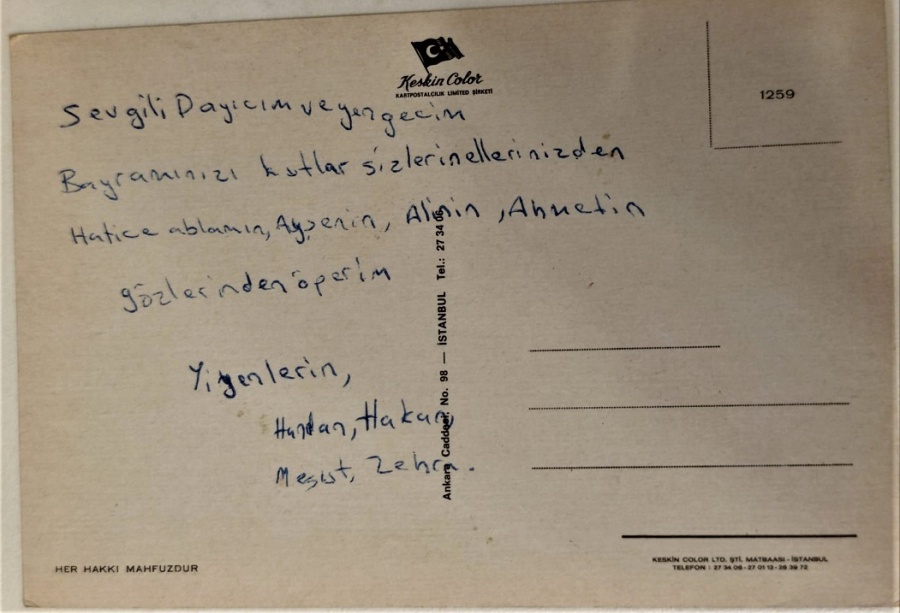 Keskin Color
KARTPOSTALCILIK LIMITED ŞİRKETİ
1259
Sevgili Dayıcım ve yengecim
Bayramınızı kutlar sizlerin ellerinizden
Hatice ablamın, Ayşenin, Alinin, Ahmetin
gözlerinden öperim
Yiğenlerin,
Handan, Hakan,
Mesut, Zehra.
Ankara Caddesi, No. 98 — İSTANBUL Tel.: 27 34 06
HER HAKKI MAHFUZDUR
KESKİN COLOR LTD. ŞTİ. MATBAASI - İSTANBUL
TELEFON : 27 34 06 - 27 01 13 - 26 39 72